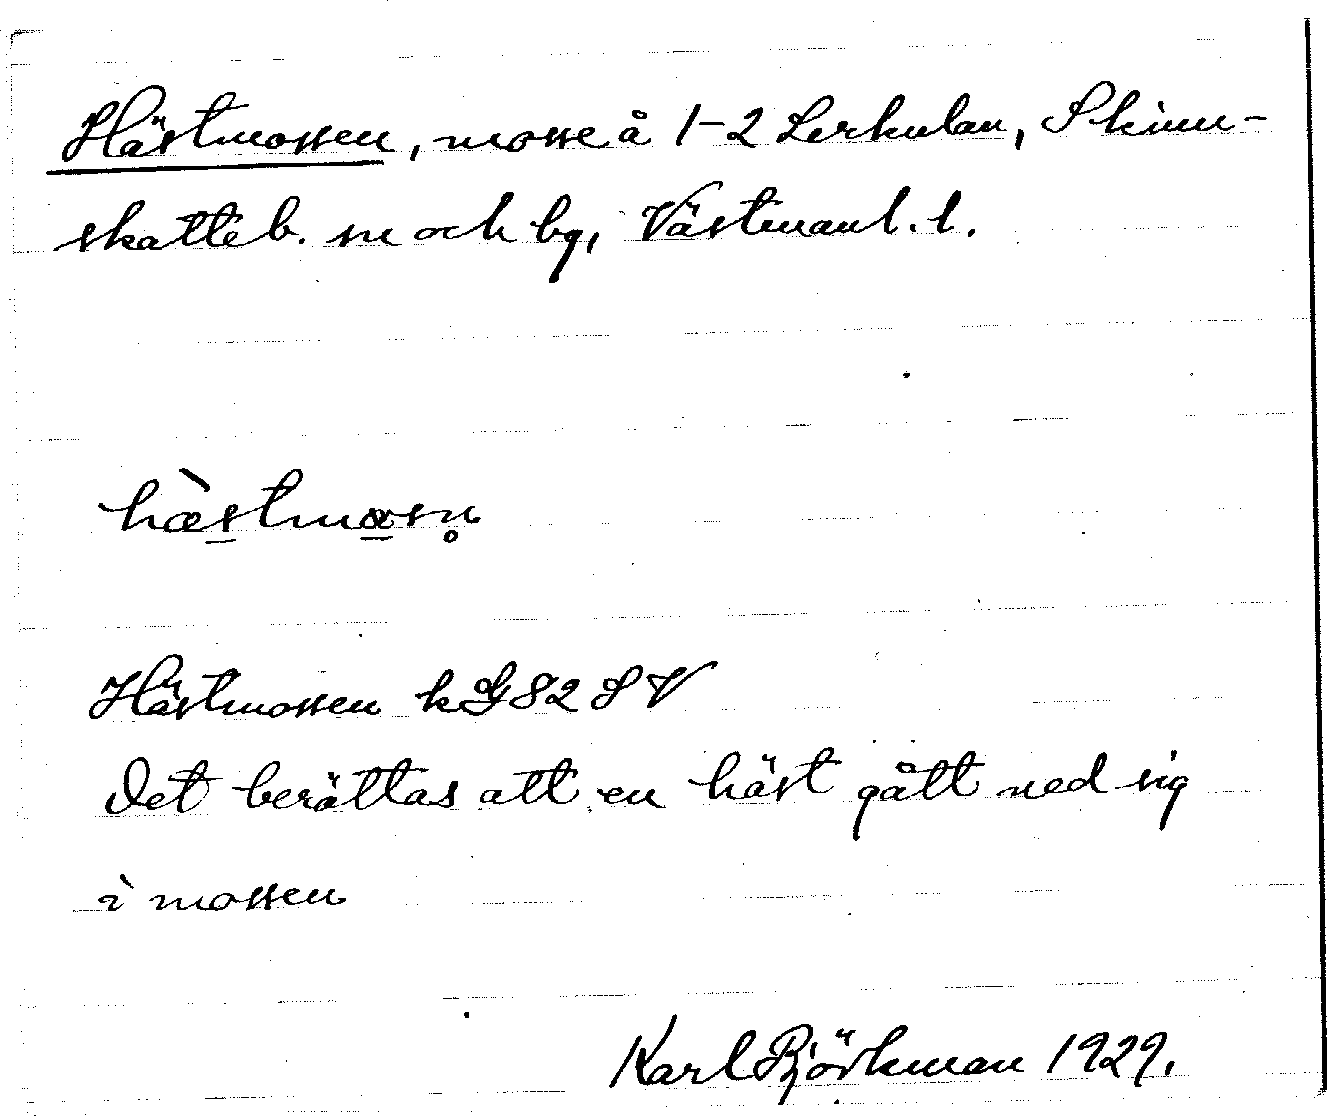 Hästmossen, mosse å 1-2 Lerkulan, Skinn-
skatteb. sn och by, Västmanl. l.
hæ̀s̲tmo̲sn̥
Hästmossen k G 82 S V
Det berättas att en häst gått ned sig
i mossen
Karl Björkman 1929.